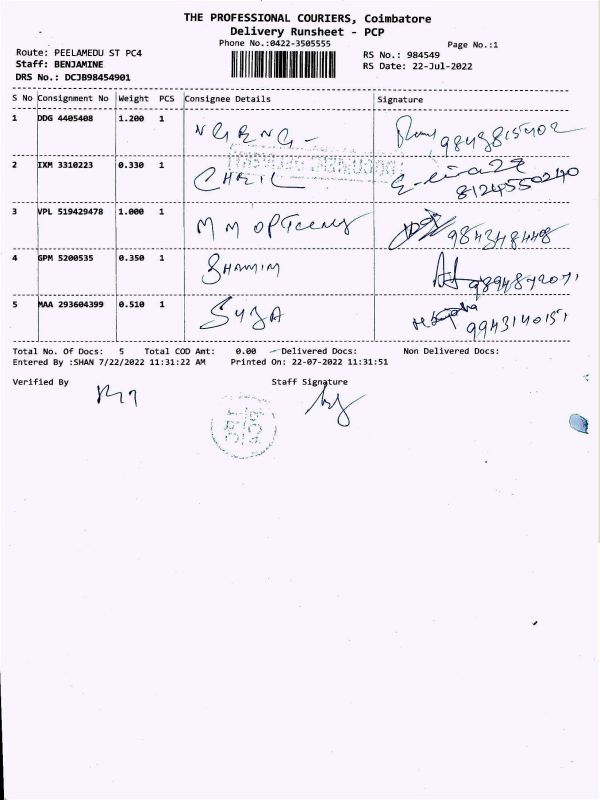 THE PROFESSIONAL COURIERS, Coimbatore
Delivery Runsheet - PCP
Phone No.:0422-3505555
Page No.:1
Route: PEELAMEDU ST PC4
RS No.: 984549
Staff: BENJAMINE
RS Date: 22-Jul-2022
DRS No.: DCJB98454901
S No Consignment No Weight PCS Consignee Details Signature
1 DDG 4405408 1.200 1
9843815402
2 IXM 3310223 0.330 1
8124550240
3 VPL 519429478 1.000 1 M M
9843484448
4 GPM 5200535 0.350 1 SHAMIM
9894872071
5 MAA 293604399 0.510 1 SUJA
9943140151
Total No. Of Docs: 5 Total COD Amt: 0.00 Delivered Docs: Non Delivered Docs:
Entered By :SHAN 7/22/2022 11:31:22 AM Printed On: 22-07-2022 11:31:51
Verified By Staff Signature